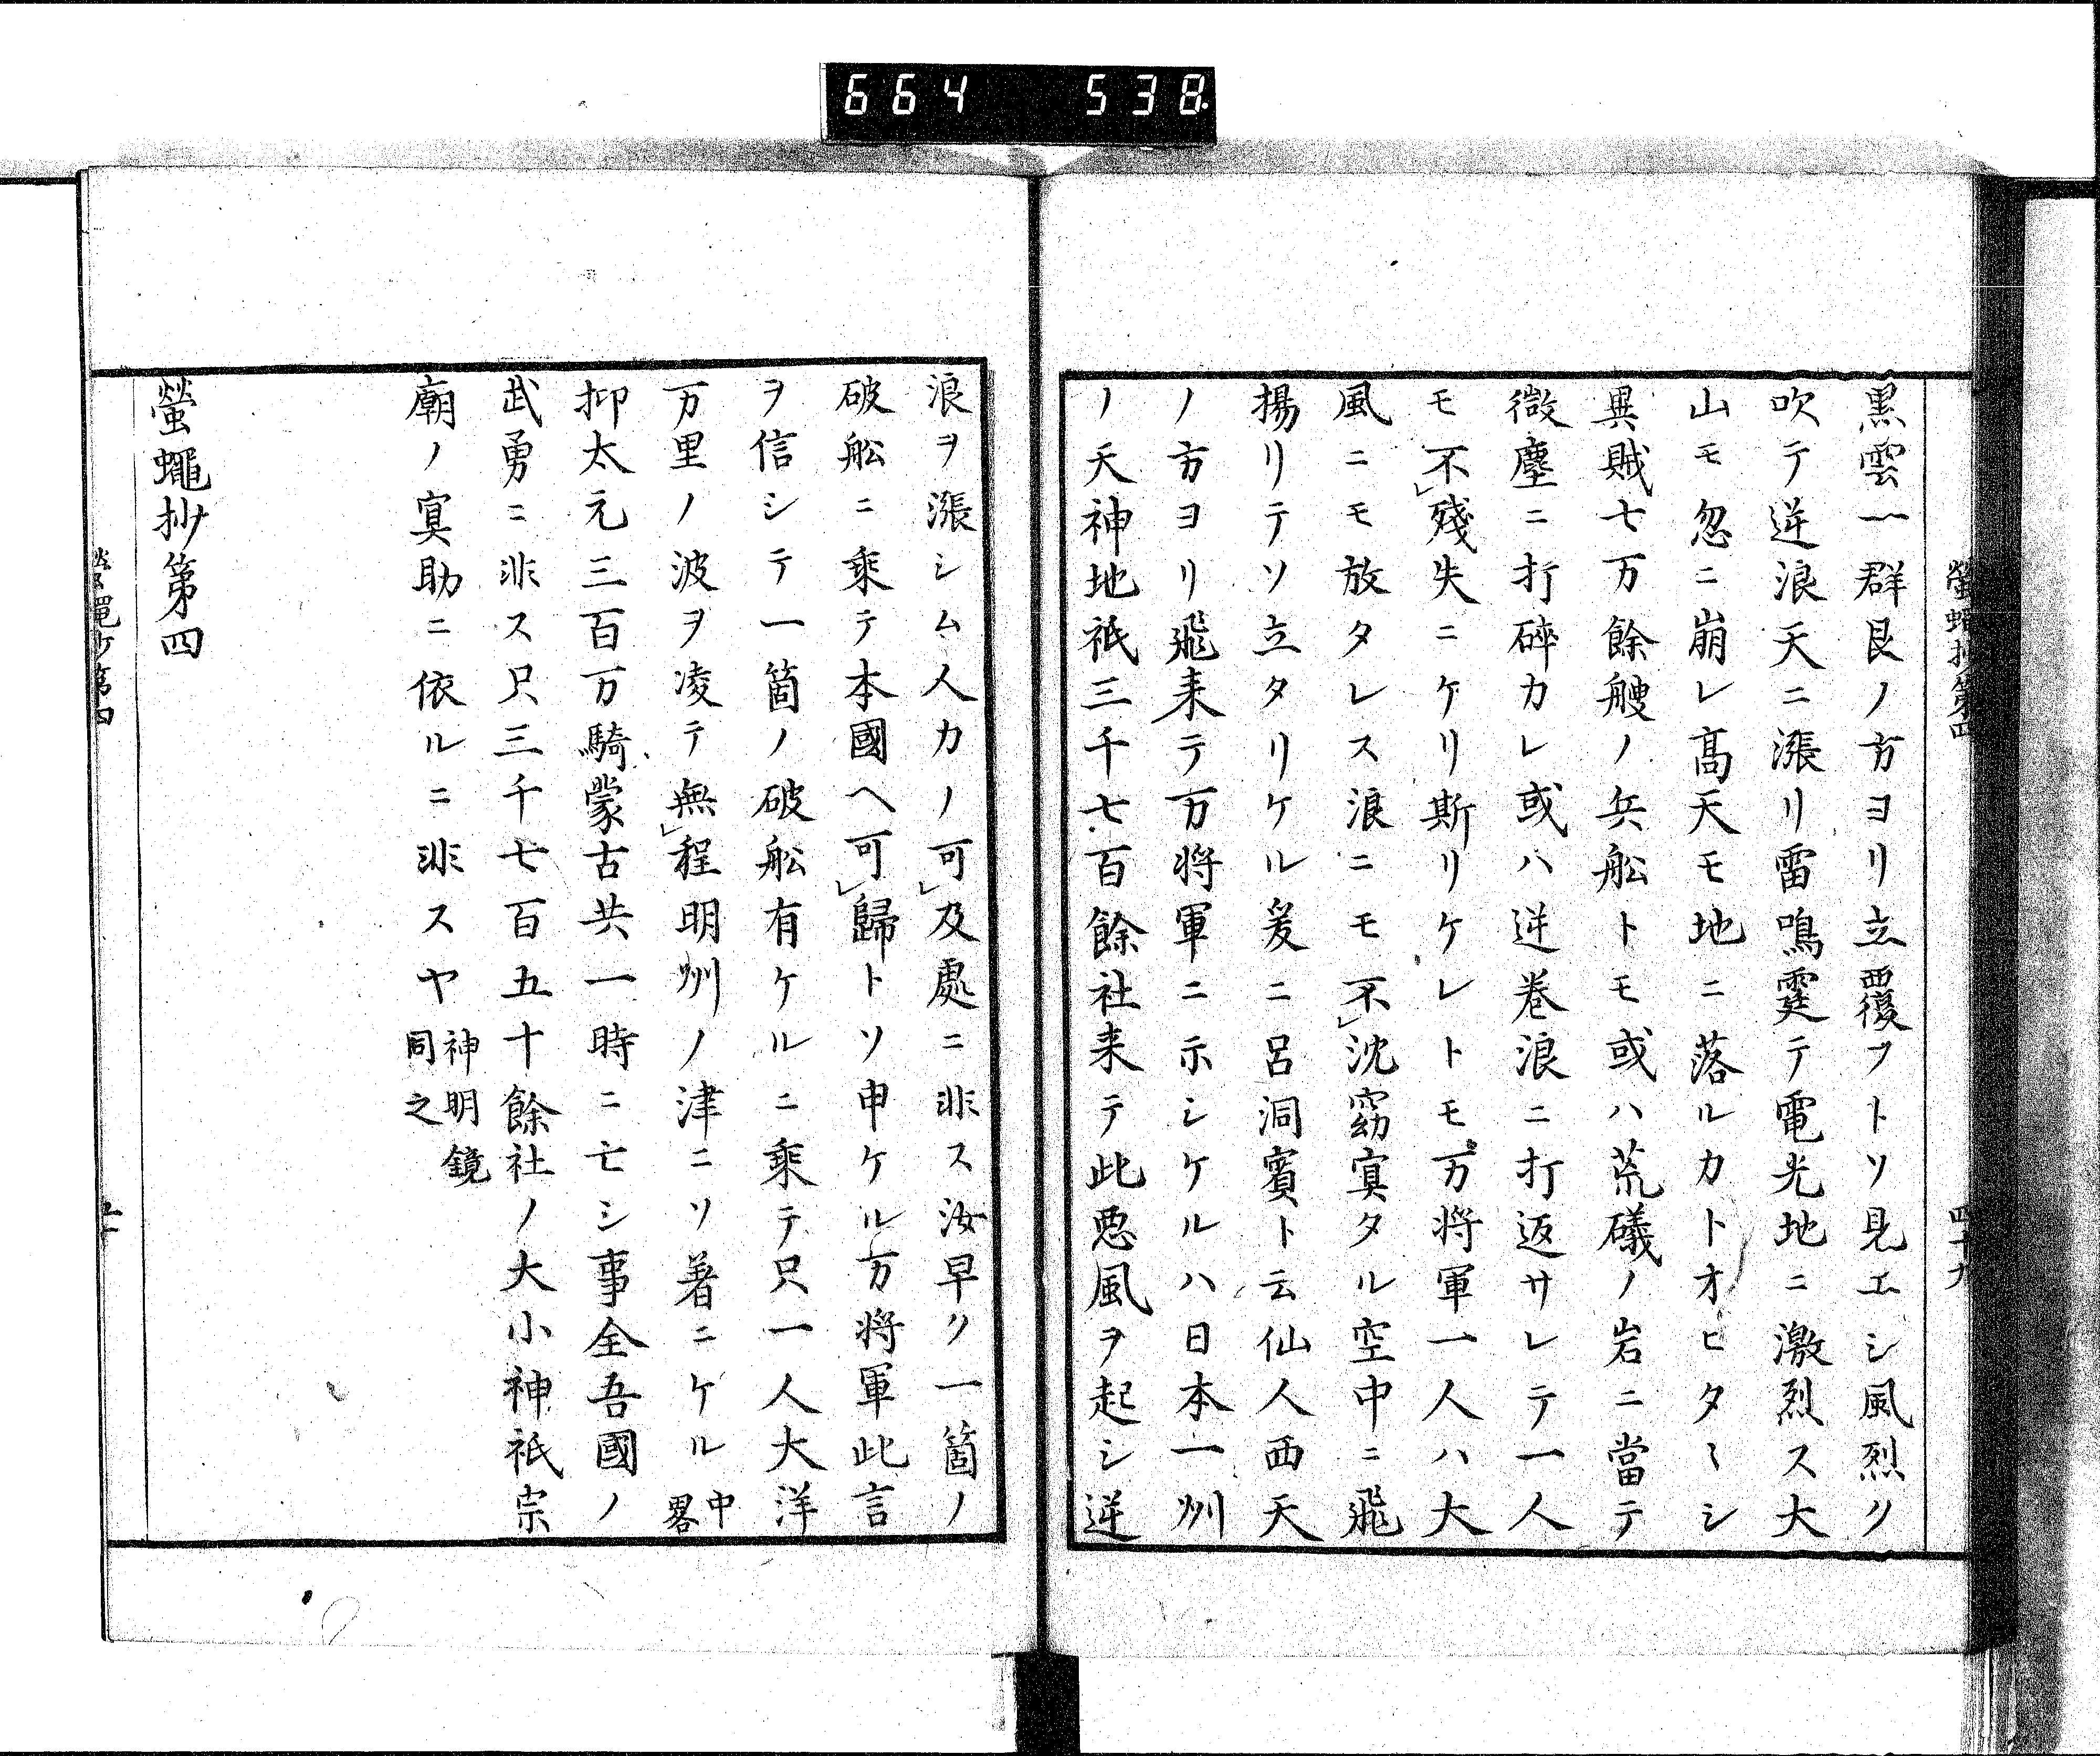 664 538
螢蠅抄第四 四十九
黒雲一群艮ノ方ヨリ立覆フトソ見エシ風烈ク
吹テ逆浪天ニ漲リ雷鳴霆テ電光地ニ激烈ス大
山モ忽ニ崩レ髙天モ地ニ落ルカトオヒタヽシ
異賊七万餘艘ノ兵舩トモ或ハ荒礒ノ岩ニ當テ
微塵ニ打碎カレ或ハ逆巻浪ニ打返サレテ一人
モ不殘失ニケリ斯リケレトモ万将軍一人ハ大
風ニモ放タレス浪ニモ不沈窈寞タル空中ニ飛
揚リテソ立タリケル爰ニ呂洞賓ト云仙人西天
ノ方ヨリ飛来テ万将軍ニ示シケルハ日本一州
ノ天神地祇三千七百餘社来テ此悪風ヲ起シ逆
浪ヲ漲シム人力ノ可及處ニ非ス汝早ク一箇ノ
破舩ニ乘テ本國ヘ可歸トソ申ケル万将軍此言
ヲ信シテ一箇ノ破舩有ケルニ乘テ只一人大洋
万里ノ波ヲ凌テ無程明州ノ津ニソ着ニケル中畧
抑太元三百万騎蒙古共一時ニ亡シ事全吾國ノ
武勇ニ非ス只三千七百五十餘社ノ大小神祇宗
廟ノ寞助ニ依ルニ非スヤ神明鏡同之
螢蠅抄第四
螢蠅抄第四